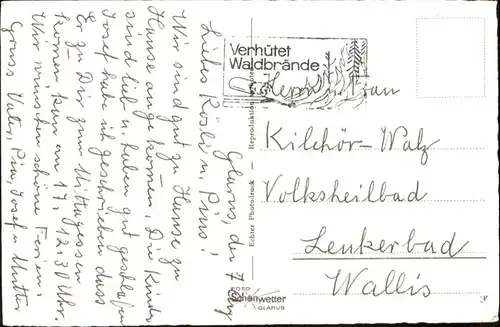 Glarus, den 7. Aug
Liebes Rösli u. Pius!
Wir sind gut zu Hause zu
Hause angekommen. Die Kinder
sind lieb u. haben gut geschlafen
Josef habe ich geschrieben dass
Er zu Dir zum Mittagessen
kommen kan am 17. 12.30 Uhr.
Wir wünschen schöne Ferien.
Gruss Vater, Pia, Josef u. Mutter
Verhütet
Waldbrände
Herrn u. Frau
Kilchör-Walz
Volksheilbad
Leukerbad
Wallis
Echter Photodruck — Reproduktion
FOTO
schönwetter
GLARUS